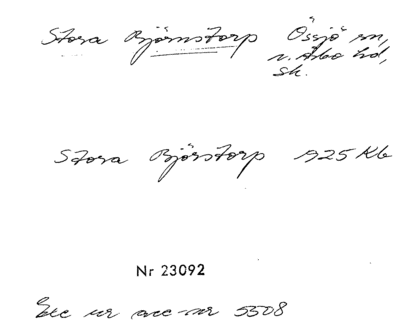 Stora Björnstorp Össjö sn,
n. Åsbo hd,
sk.
Stora Björstorp 1925 Kb
Nr 23092
Exc ur acc-nr 5508